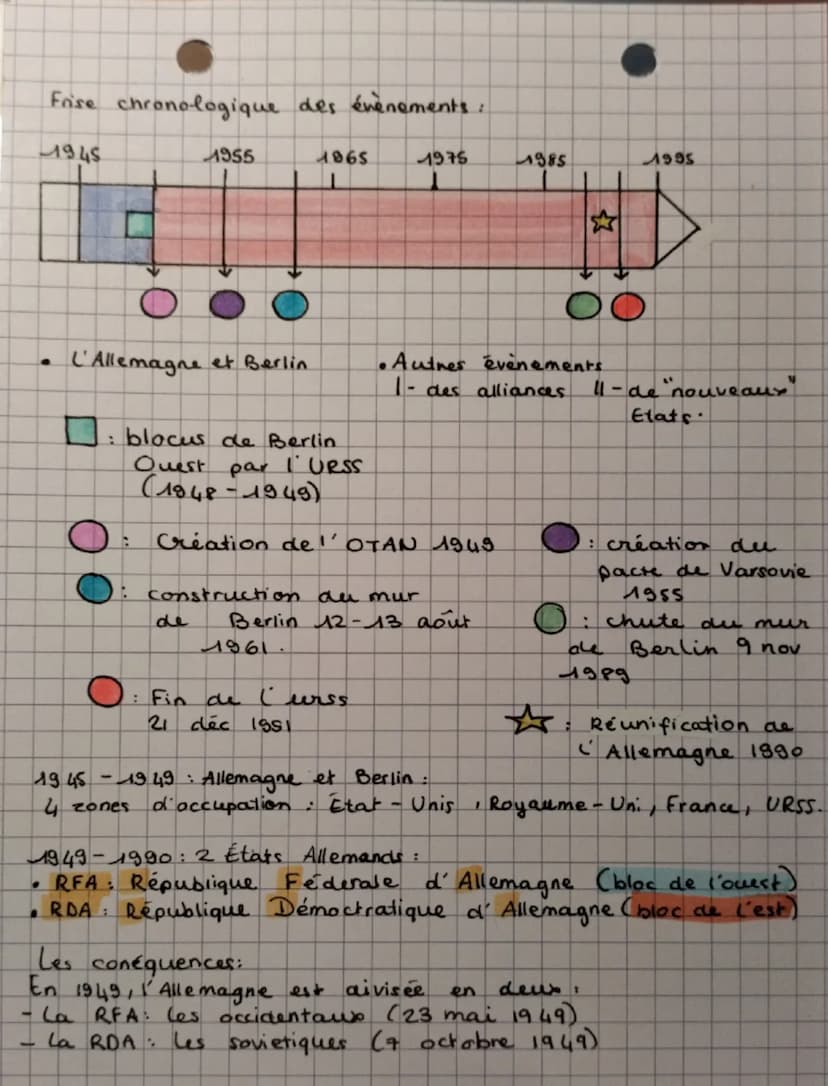 Frise chronologique des évènements :
1945 1955 1965 1975 1985 1995
• L'Allemagne et Berlin
• Autres évènements
I- des alliances II- de "nouveaux"
Etats.
: blocus de Berlin
Ouest par l'URSS
(1948-1949)
: Création de l'OTAN 1949
: création du
pacte de Varsovie
1955
: construction du mur
de Berlin 12-13 août
1961.
: chute du mur
de Berlin 9 nov
1989
: Fin de l'urss
21 déc 1991
: Réunification de
l'Allemagne 1990
1945-1949 : Allemagne et Berlin :
4 zones d'occupation : État-Unis, Royaume-Uni, France, URSS.
1949-1990 : 2 États Allemands :
• RFA : République Féderale d'Allemagne (bloc de l'ouest)
• RDA : République Démoctratique d'Allemagne (bloc de l'est)
Les conéquences:
En 1949, l'Allemagne est divisée en deux :
- La RFA : les occidentaux (23 mai 1949)
- La RDA : les sovietiques (7 octobre 1949)